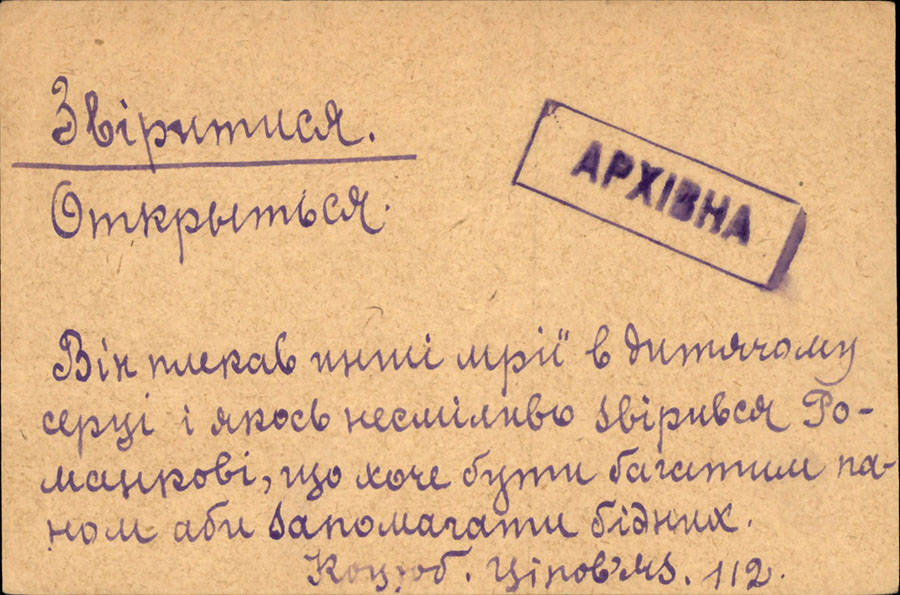 Звіритися.
АРХІВНА
Открыться.
Він плекав инші мрії в дитячому
серці і якось несміливо звірився Ро-
манкові, що хоче бути багатим па-
ном аби запомагати бідних.
Коцюб. Ціпов'яз. 112.